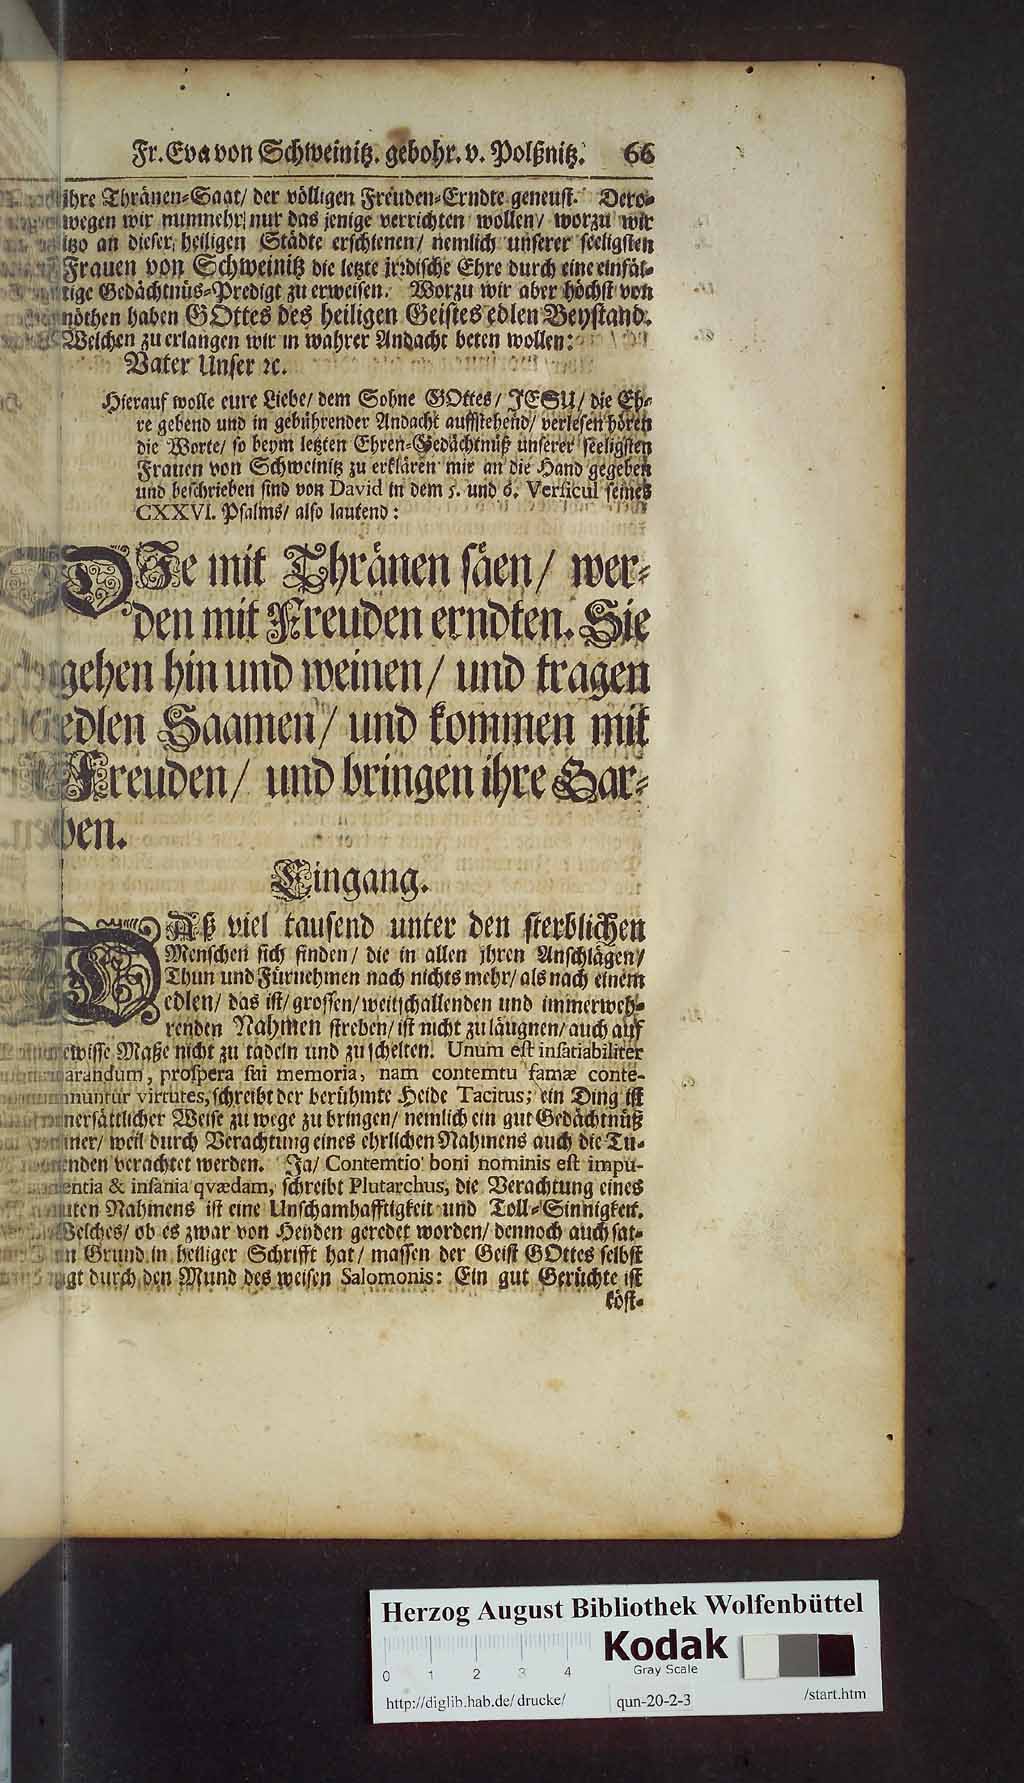 Fr. Eva von Schweinitz. gebohr. v. Polßnitz. 66
ihre Thränen-Saat/ der völligen Freuden-Erndte geneust. Dero-
wegen wir nunmehr nur das jenige verrichten wollen/ worzu wir
itzo an dieser heiligen Städte erschienen/ nemlich unserer seeligsten
Frauen von Schweinitz die letzte irrdische Ehre durch eine einfäl-
tige Gedächtnüs-Predigt zu erweisen. Worzu wir aber höchst von
nöthen haben GOttes des heiligen Geistes edlen Beystand.
Welchen zu erlangen wir in wahrer Andacht beten wollen:
Vater Unser ꝛc.
Hierauf wolle eure Liebe/ dem Sohne GOttes/ JESU/ die Eh-
re gebend und in gebührender Andacht auffstehend/ verlesen hören
die Worte/ so beym letzten Ehren-Gedächtnüß unserer seeligsten
Frauen von Schweinitz zu erklären mir an die Hand gegeben
und beschrieben sind von David in dem 5. und 6. Versicul seines
CXXVI. Psalms/ also lautend:
DIe mit Thränen säen/ wer-
den mit Freuden erndten. Sie
gehen hin und weinen/ und tragen
edlen Saamen/ und kommen mit
Freuden/ und bringen ihre Gar-
ben.
Eingang.
DAß viel tausend unter den sterblichen
Menschen sich finden/ die in allen ihren Anschlägen/
Thun und Fürnehmen nach nichts mehr/ als nach einem
edlen/ das ist/ grossen/ weitschallenden und immerweh-
renden Nahmen streben/ ist nicht zu läugnen/ auch auf
ewisse Maße nicht zu tadeln und zu schelten. Unum est insatiabiliter
arandum, prospera sui memoria, nam contemtu famæ conte-
mnuntur virtutes, schreibt der berühmte Heide Tacitus; ein Ding ist
nersättlicher Weise zu wege zu bringen/ nemlich ein gut Gedächtnüß
iner/ weil durch Verachtung eines ehrlichen Nahmens auch die Tu-
nden verachtet werden. Ja/ Contemtio boni nominis est impu-
entia & insania qvædam, schreibt Plutarchus, die Verachtung eines
uten Nahmens ist eine Unschamhafftigkeit und Toll-Sinnigkeit.
Welches/ ob es zwar von Heyden geredet worden/ dennoch auch sat-
n Grund in heiliger Schrifft hat/ massen der Geist GOttes selbst
gt durch den Mund des weisen Salomonis: Ein gut Gerüchte ist
köst-
Herzog August Bibliothek Wolfenbüttel
Kodak
Gray Scale
0 1 2 3 4
http://diglib.hab.de/drucke/ qun-20-2-3 /start.htm